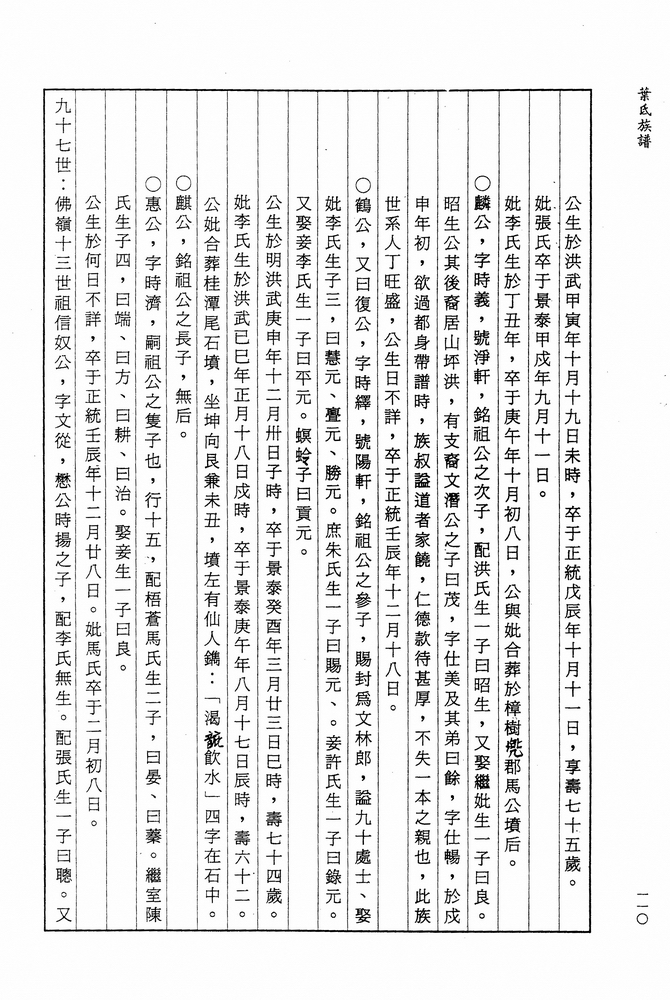 葉氏族譜
公生於洪武甲寅年十月十九日未時，卒于正統戊辰年十月十一日，享壽七十五歲。
妣張氏卒于景泰甲戌年九月十一日。
妣李氏生於丁丑年，卒于庚午年十月初八日，公與妣合葬於樟樹郡馬公墳后。
○麟公，字時義，號淨軒，銘祖公之次子，配洪氏生一子曰昭生，又娶繼妣生一子曰良。
昭生公其後裔居山坪洪，有支裔文潛公之子曰茂，字仕美及其弟曰餘，字仕暢，於戍
申年初，欲過都身帶譜時，族叔謚道者家饒，仁德款待甚厚，不失一本之親也，此族
世系人丁旺盛，公生日不詳，卒于正統壬辰年十二月十八日。
○鶴公，又曰復公，字時繹，號陽軒，銘祖公之參子，賜封爲文林郎，謚九十處士、娶
妣李氏生子三，曰慧元、亹元、勝元。庶朱氏生一子曰賜元、。妾許氏生一子曰錄元。
又娶妾李氏生一子曰平元。螟蛉子曰貢元。
公生於明洪武庚申年十二月卅日子時，卒于景泰癸酉年三月廿三日巳時，壽七十四歲。
妣李氏生於洪武己巳年正月十八日戍時，卒于景泰庚午年八月十七日辰時，壽六十二。
公妣合葬桂潭尾石墳，坐坤向艮兼未丑，墳左有仙人鐫：「渴飲水」四字在石中。
○麒公，銘祖公之長子，無后。
○惠公，字時濟，嗣祖公之隻子也，行十五，配梧蒼馬氏生二子，曰晏、曰蓁。繼室陳
氏生子四，曰端、曰方、曰耕、曰治。娶妾生一子曰良。
公生於何日不詳，卒于正統壬辰年十二月廿八日。妣馬氏卒于二月初八日。
九十七世：佛嶺十三世祖信奴公，字文從，懋公時揚之子，配李氏無生。配張氏生一子曰聰。又
一一○